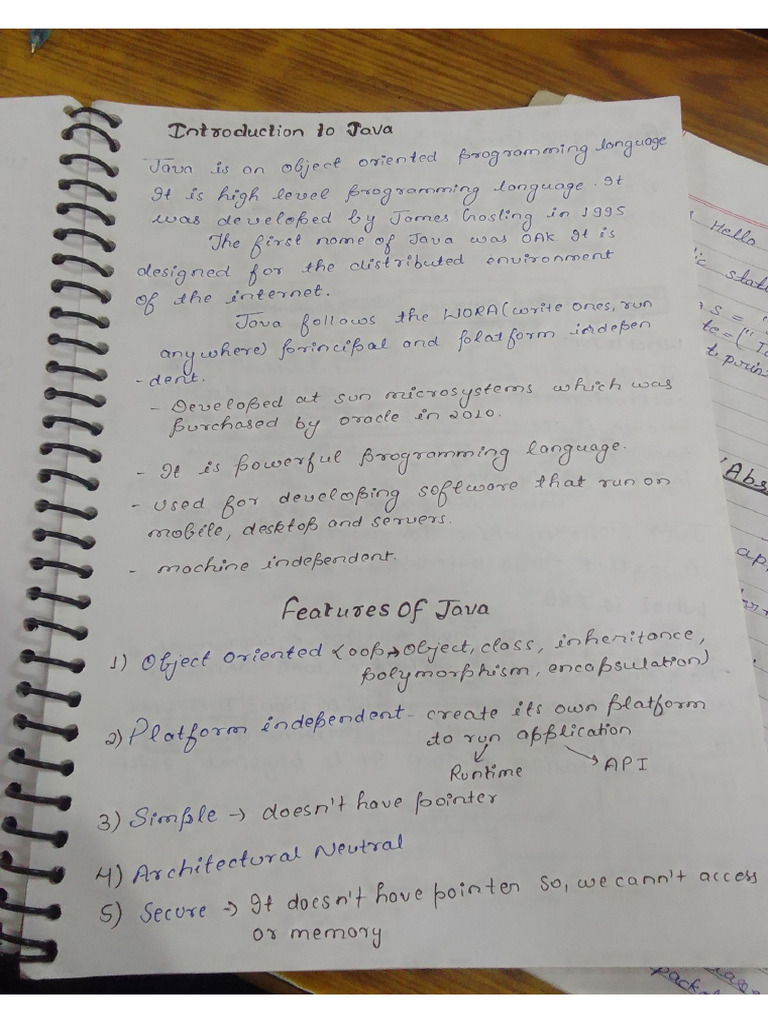 Introduction to Java
Java is an object oriented programming language
It is high level programming language. It
was developed by James Gosling in 1995
The first name of Java was OAK It is
designed for the distributed environment
of the internet.
Java follows the WORA (write ones, run
anywhere) principal and platform indepen
- dent.
- Developed at sun microsystems which was
purchased by oracle in 2010.
- It is powerful programming language.
- used for developing software that run on
mobile, desktop and servers.
- machine independent.
Features Of Java
1) Object oriented (OOP → Object, class, inheritance,
polymorphism, encapsulation)
2) Platform independent - create its own platform
to run application
Runtime API
3) Simple → doesn't have pointer
4) Architectural Neutral
5) Secure → It doesn't have pointer so, we cann't access
or memory
Hello
ic stat
s = "
te = ("
t prin
Abs
ap
pack